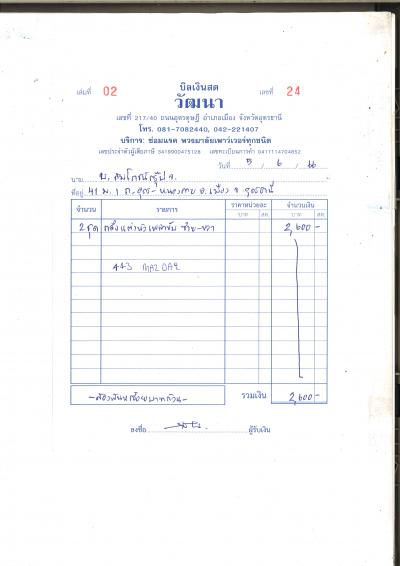 บิลเงินสด
เล่มที่ 02 เลขที่ 24
วัฒนา
เลขที่ 217/40 ถนนอุดรดุษฎี อำเภอเมือง จังหวัดอุดรธานี
โทร. 081-7082440, 042-221407
บริการ: ซ่อมแรค พวงมาลัยเพาเวอร์ทุกชนิด
เลขประจำตัวผู้เสียภาษี 3419900475128 เลขทะเบียนการค้า 0417114704652
วันที่ 5 / 6 / 66
นาม
ที่อยู่ 41 ม. 1 ถ. อ. เมือง จ. อุดรธานี
จำนวน รายการ ราคาหน่วยละ จำนวนเงิน
บาท สต. บาท สต.
2 ชุด ซ้าย-ขวา 2,600-
443 MAZDA2
-สองพันหกร้อยบาทถ้วน- รวมเงิน 2,600-
ลงชื่อ ผู้รับเงิน